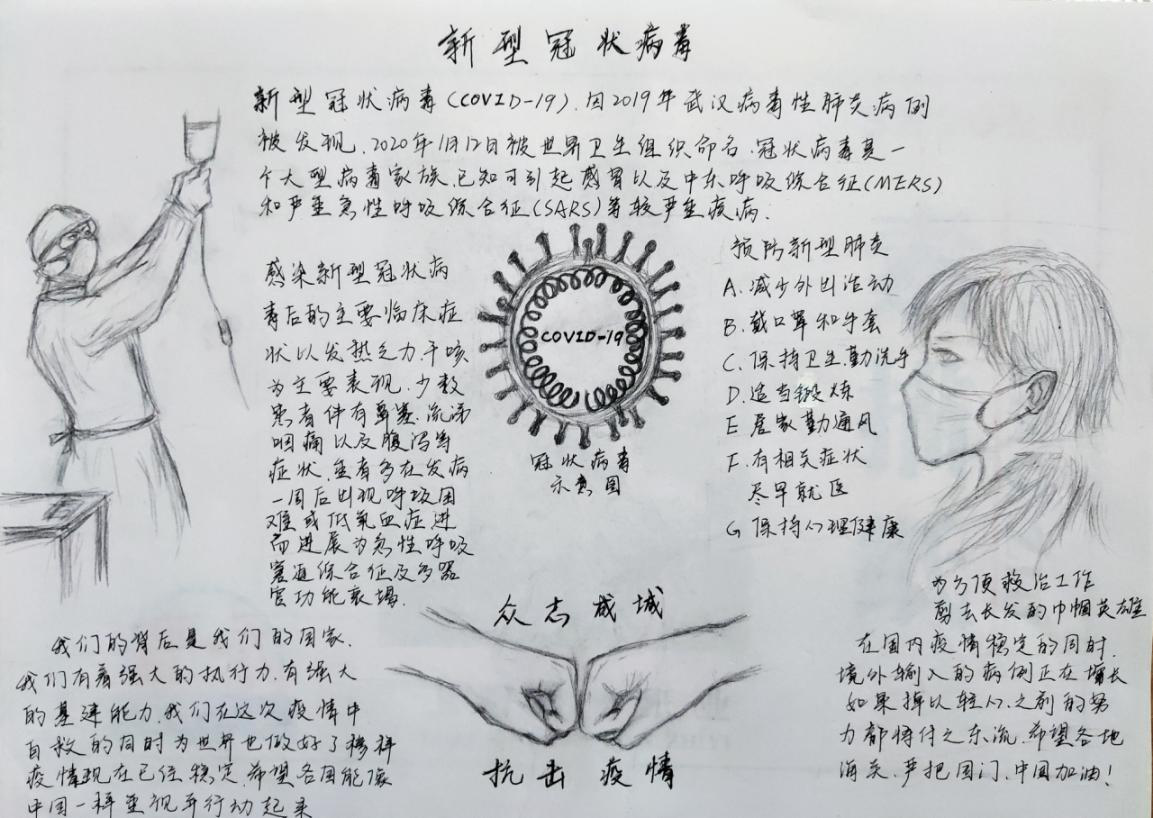 新型冠状病毒
新型冠状病毒(COVID-19).因2019年武汉病毒性肺炎病例
被发现.2020年1月12日被世界卫生组织命名.冠状病毒是一
个大型病毒家族.已知可引起感冒以及中东呼吸综合征(MERS)
和严重急性呼吸综合征(SARS)等较严重疾病.
感染新型冠状病
毒后的主要临床症
状以发热乏力.干咳
为主要表现.少数
患者伴有鼻塞.流涕
咽痛以及腹泻等
症状.重者多在发病
一周后出现呼吸困
难或低氧血症进
而进展为急性呼吸
窘迫综合征及多器
官功能衰竭.
COVID-19
冠状病毒
示意图
预防新型肺炎
A.减少外出活动
B.戴口罩和手套
C.保持卫生.勤洗手
D.适当锻炼
E居家勤通风
F.有相关症状
尽早就医
G保持心理健康
为方便救治工作
剪去长发的巾帼英雄
众志成城
抗击疫情
我们的背后是我们的国家.
我们有着强大的执行力.有强大
的基建能力.我们在这次疫情中
自救的同时为世界也做好了榜样
疫情现在已经稳定.希望各国能像
中国一样重视并行动起来
在国内疫情稳定的同时.
境外输入的病例正在增长
如果掉以轻心.之前的努
力都将付之东流.希望各地
海关.严把国门.中国加油!